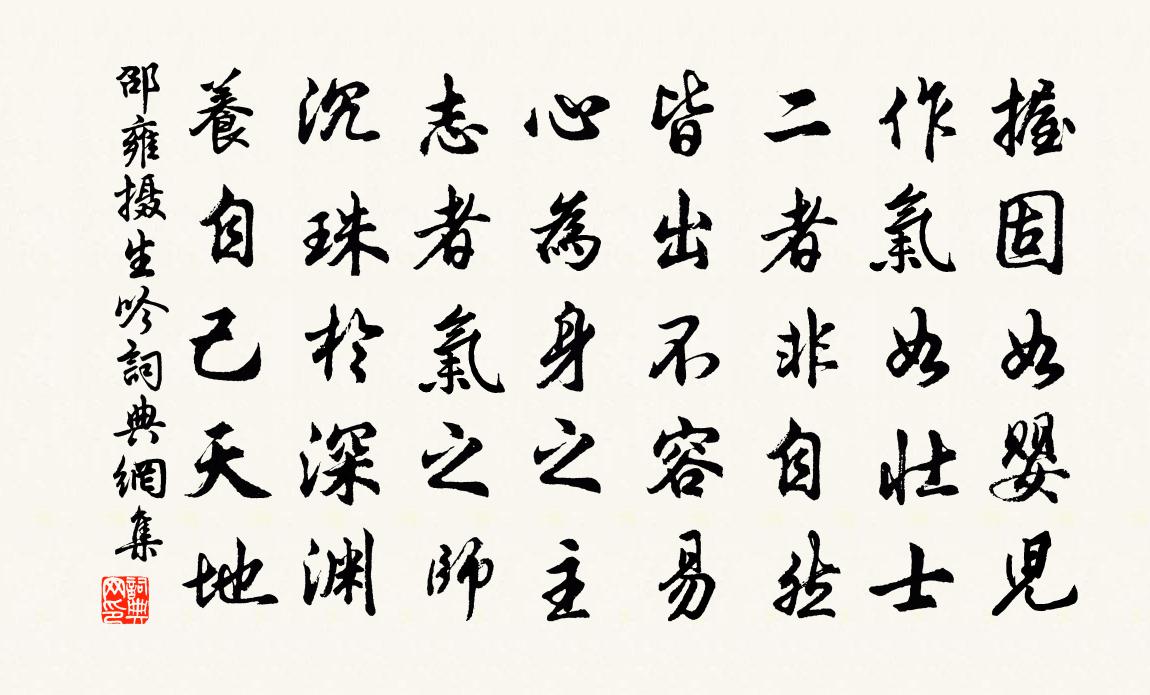 握固如嬰児
作氣如壮士
二者非自然
皆出不容易
心為身之主
志者氣之師
沉珠於深渊
養自己天地
邵雍摄生吟詞典網集
詞典网印